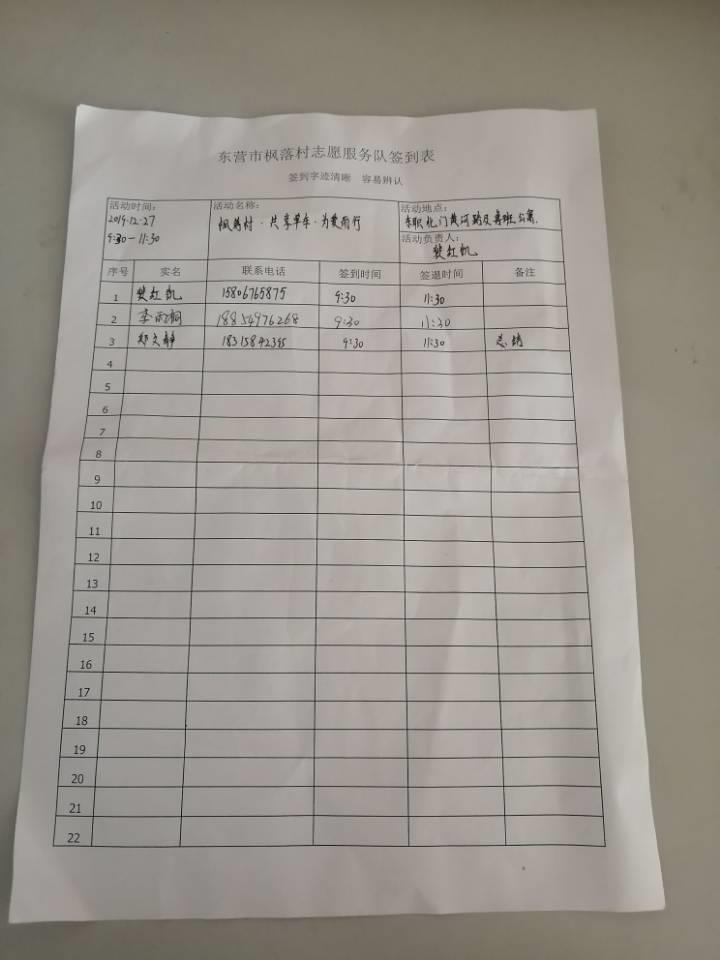 东营市枫落村志愿服务队签到表
签到字迹清晰 容易辨认
活动时间: 活动名称: 活动地点:
2019.12.27 枫落村·共享单车·为爱而行 东职北门黄河路及
9:30-11:30 活动负责人:
樊红凯
序号 实名 联系电话 签到时间 签退时间 备注
1 樊红凯 15806765875 9:30 11:30
2 李雨桐 18854976268 9:30 11:30
3 郑文静 18315842345 9:30 11:30
4
5
6
7
8
9
10
11
12
13
14
15
16
17
18
19
20
21
22